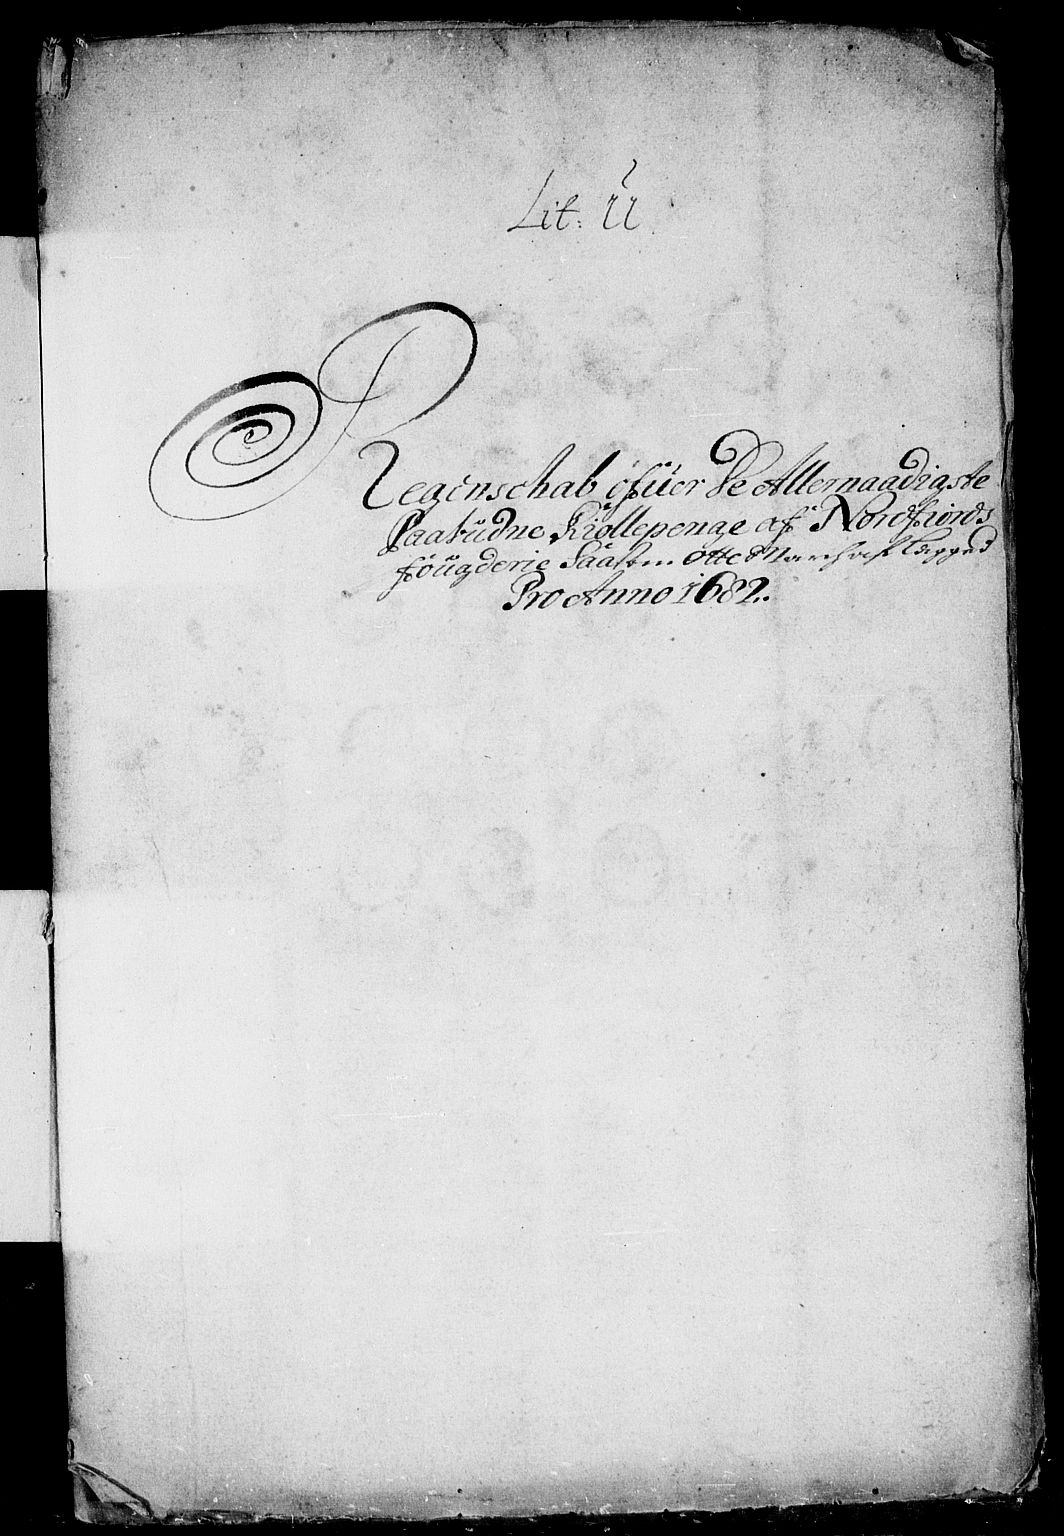 Lit: U
Regenschab ofüer de Allernaadigste
Paabüdne Kiøllepenge af Nordfiords
fougderie Saasom otte Marchaf lægged
Pro Anno 1682.